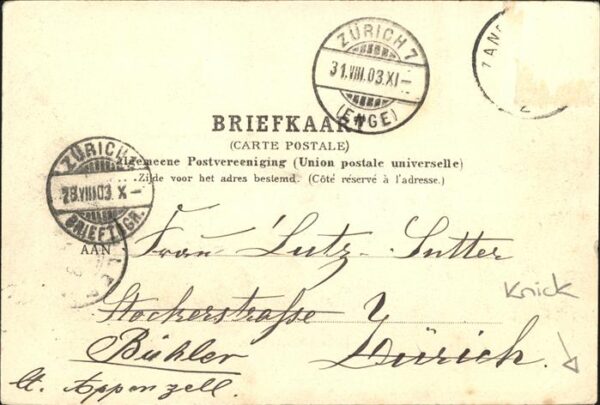 ZÜRICH 7
31.VIII.03.XI–
(ENGE)
BRIEFKAART
(CARTE POSTALE)
Algemeene Postvereeniging (Union postale universelle)
Zijde voor het adres bestemd. (Côté réservé à l'adresse.)
ZÜRICH
28.VIII.03 X–
BRIEFTRGR.
AAN
Frau Lutz-Sutter
Stockerstrasse 7
Knick
Bühler
Zürich.
Ct. Appenzell.